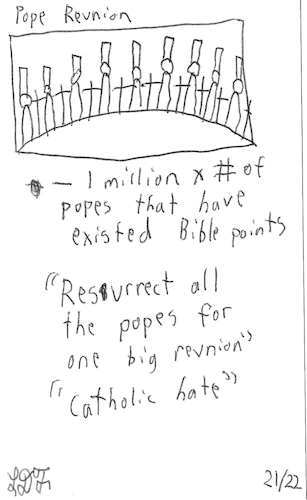 Pope Reunion
- 1 million x # of
popes that have
existed Bible points
"Resurrect all
the popes for
one big reunion"
"Catholic hate"
LDF
21/22